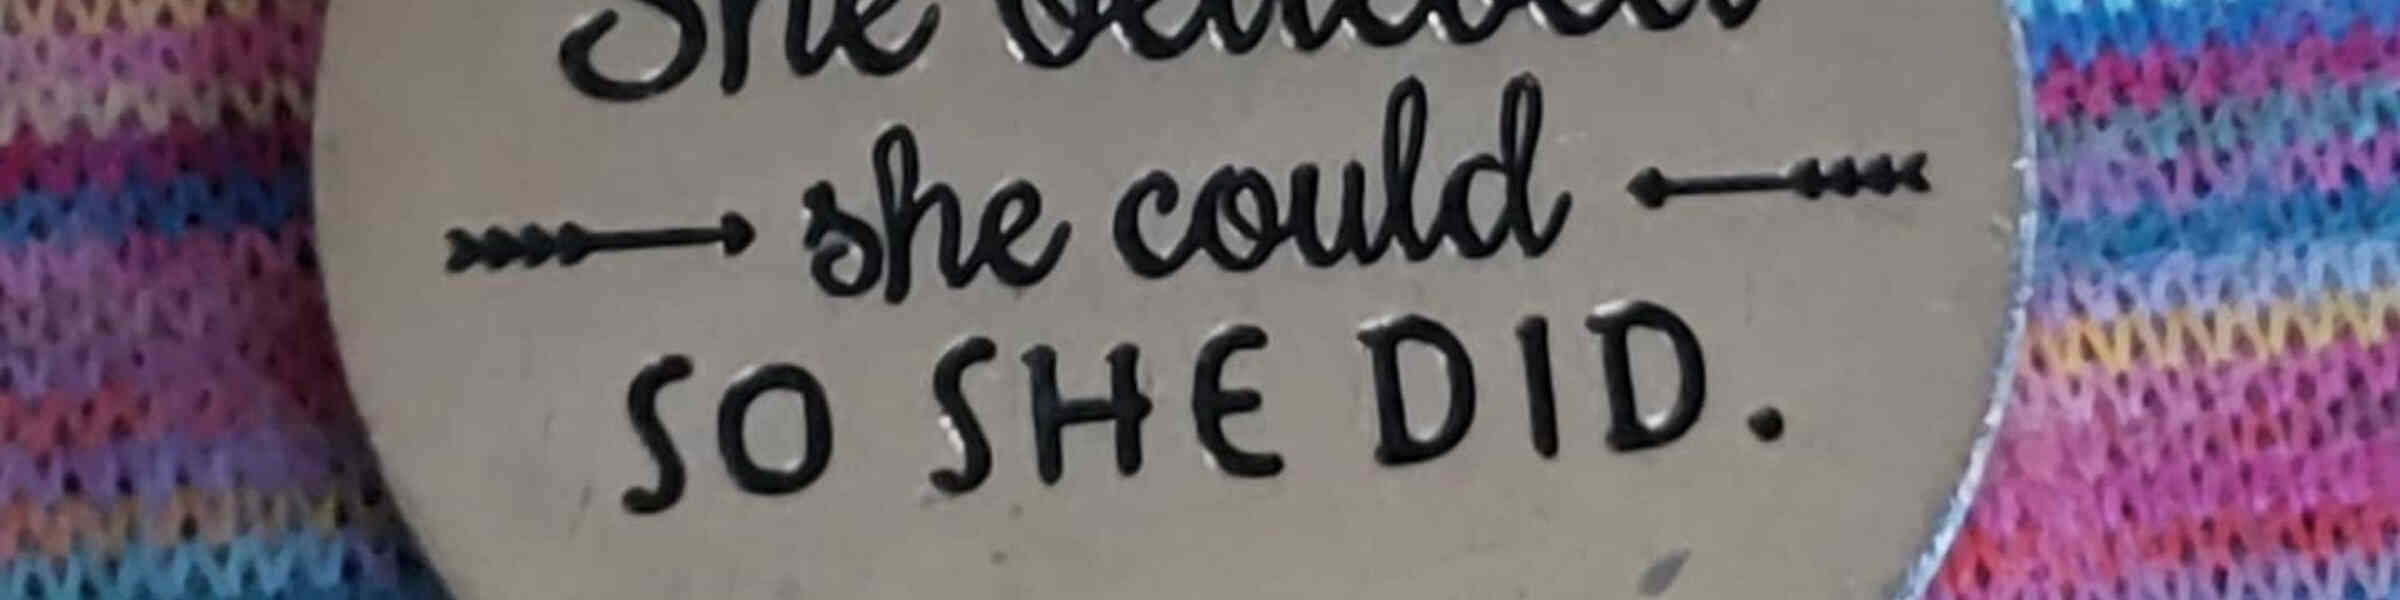 She believed
she could
SO SHE DID.